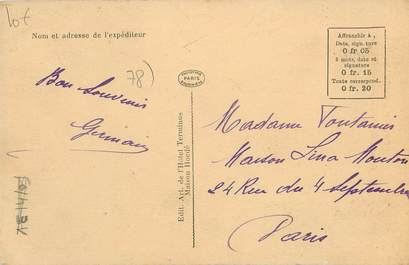 Lot
Nom et adresse de l'expéditeur
78)
Bon Souvenir
Germain
PARIS
Edit. Art. de l'Hôtel Terminus
Maison Hoedé
Affranchir à,
Date, sign. ture
0 fr 05
5 mots, date et
signature
0 fr. 15
Texte correspond.
0 fr. 20
Madame Fontanier
Maison Lina Mouton
24 Rue du 4 Septembre
Paris